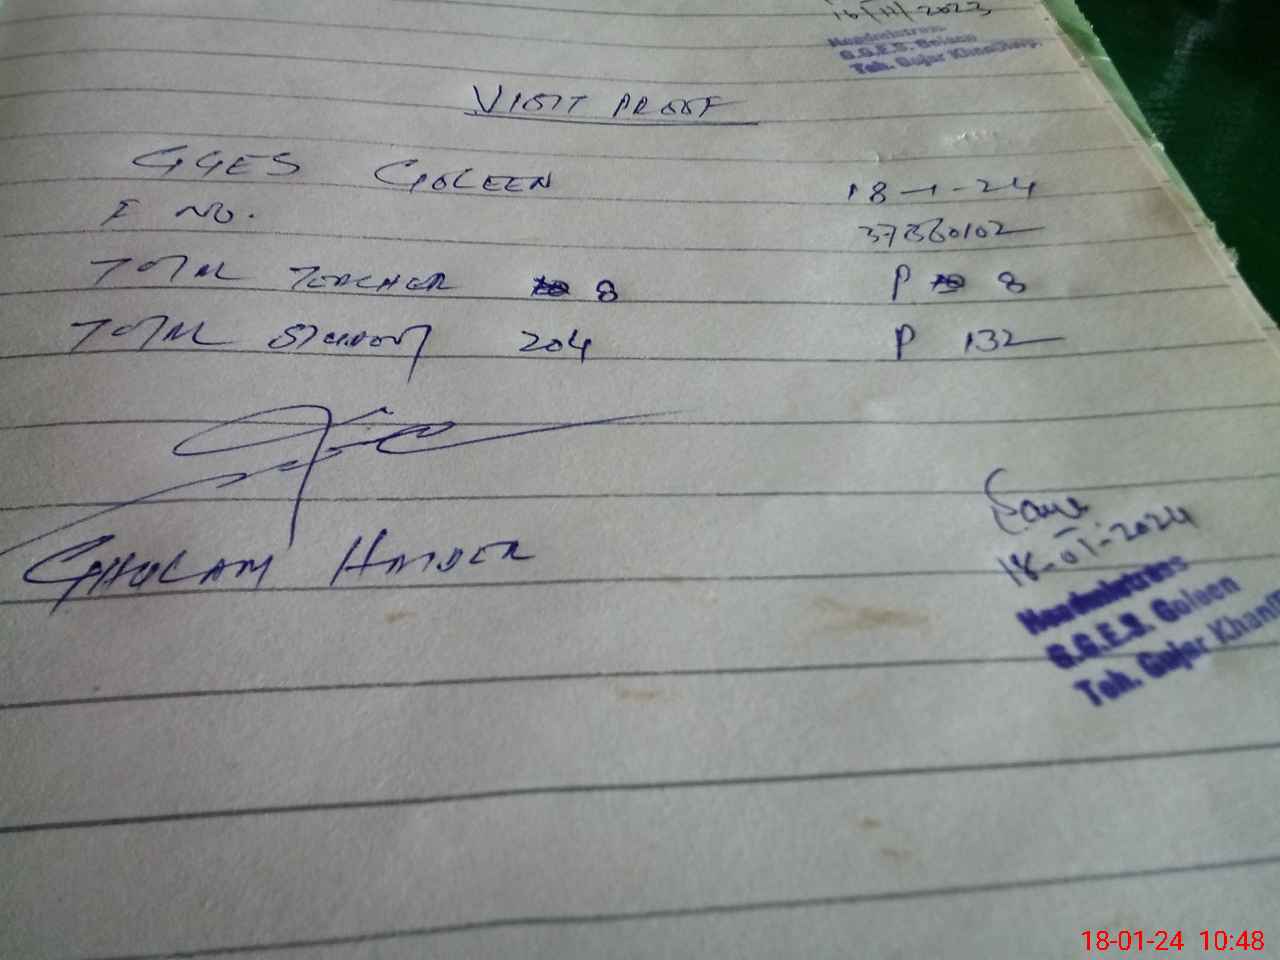 16/11/2023
Headmistress
G.G.E.S. Goleen
Teh. Gujar Khan
VISIT PROOF
GGES GOLEEN 18-1-24
E NO. 37360102
TOTAL TEACHER 8 P 8
TOTAL STUDENT 204 P 132
GHULAM HAIDER
18-01-2024
Headmistress
G.G.E.S. Goleen
Teh. Gujar Khan
18-01-24 10:48